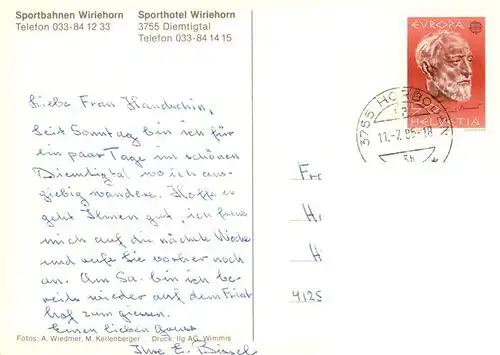 Sportbahnen Wiriehorn
Telefon 033-84 12 33
Sporthotel Wiriehorn
3755 Diemtigtal
Telefon 033-84 14 15
EUROPA
HELVETIA
3755 HORBODEN
11.-7.85-18
Liebe Frau Handschin,
Seit Sonntag bin ich für
ein paar Tage im schönen
Diemtigtal wo ich aus-
giebig wandere. Hoffe es
geht Ihnen gut, ich freue
mich auf die nächste Woche
und rufe Sie vorher noch
an. Am Sa. bin ich be-
reits wieder auf dem Fried-
hof zum giessen.
Einen lieben Gruss
Ihre E.
Fr
H
H
4125
Fotos: A. Wiedmer, M. Kellenberger Druck: Ilg AG, Wimmis